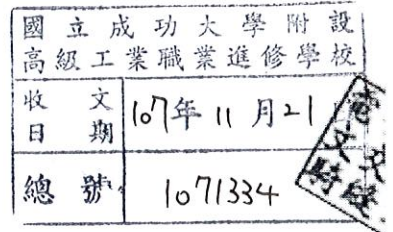 國立成功大學附設
高級工業職業進修學校
收文日期 107年11月21
總號 1071334